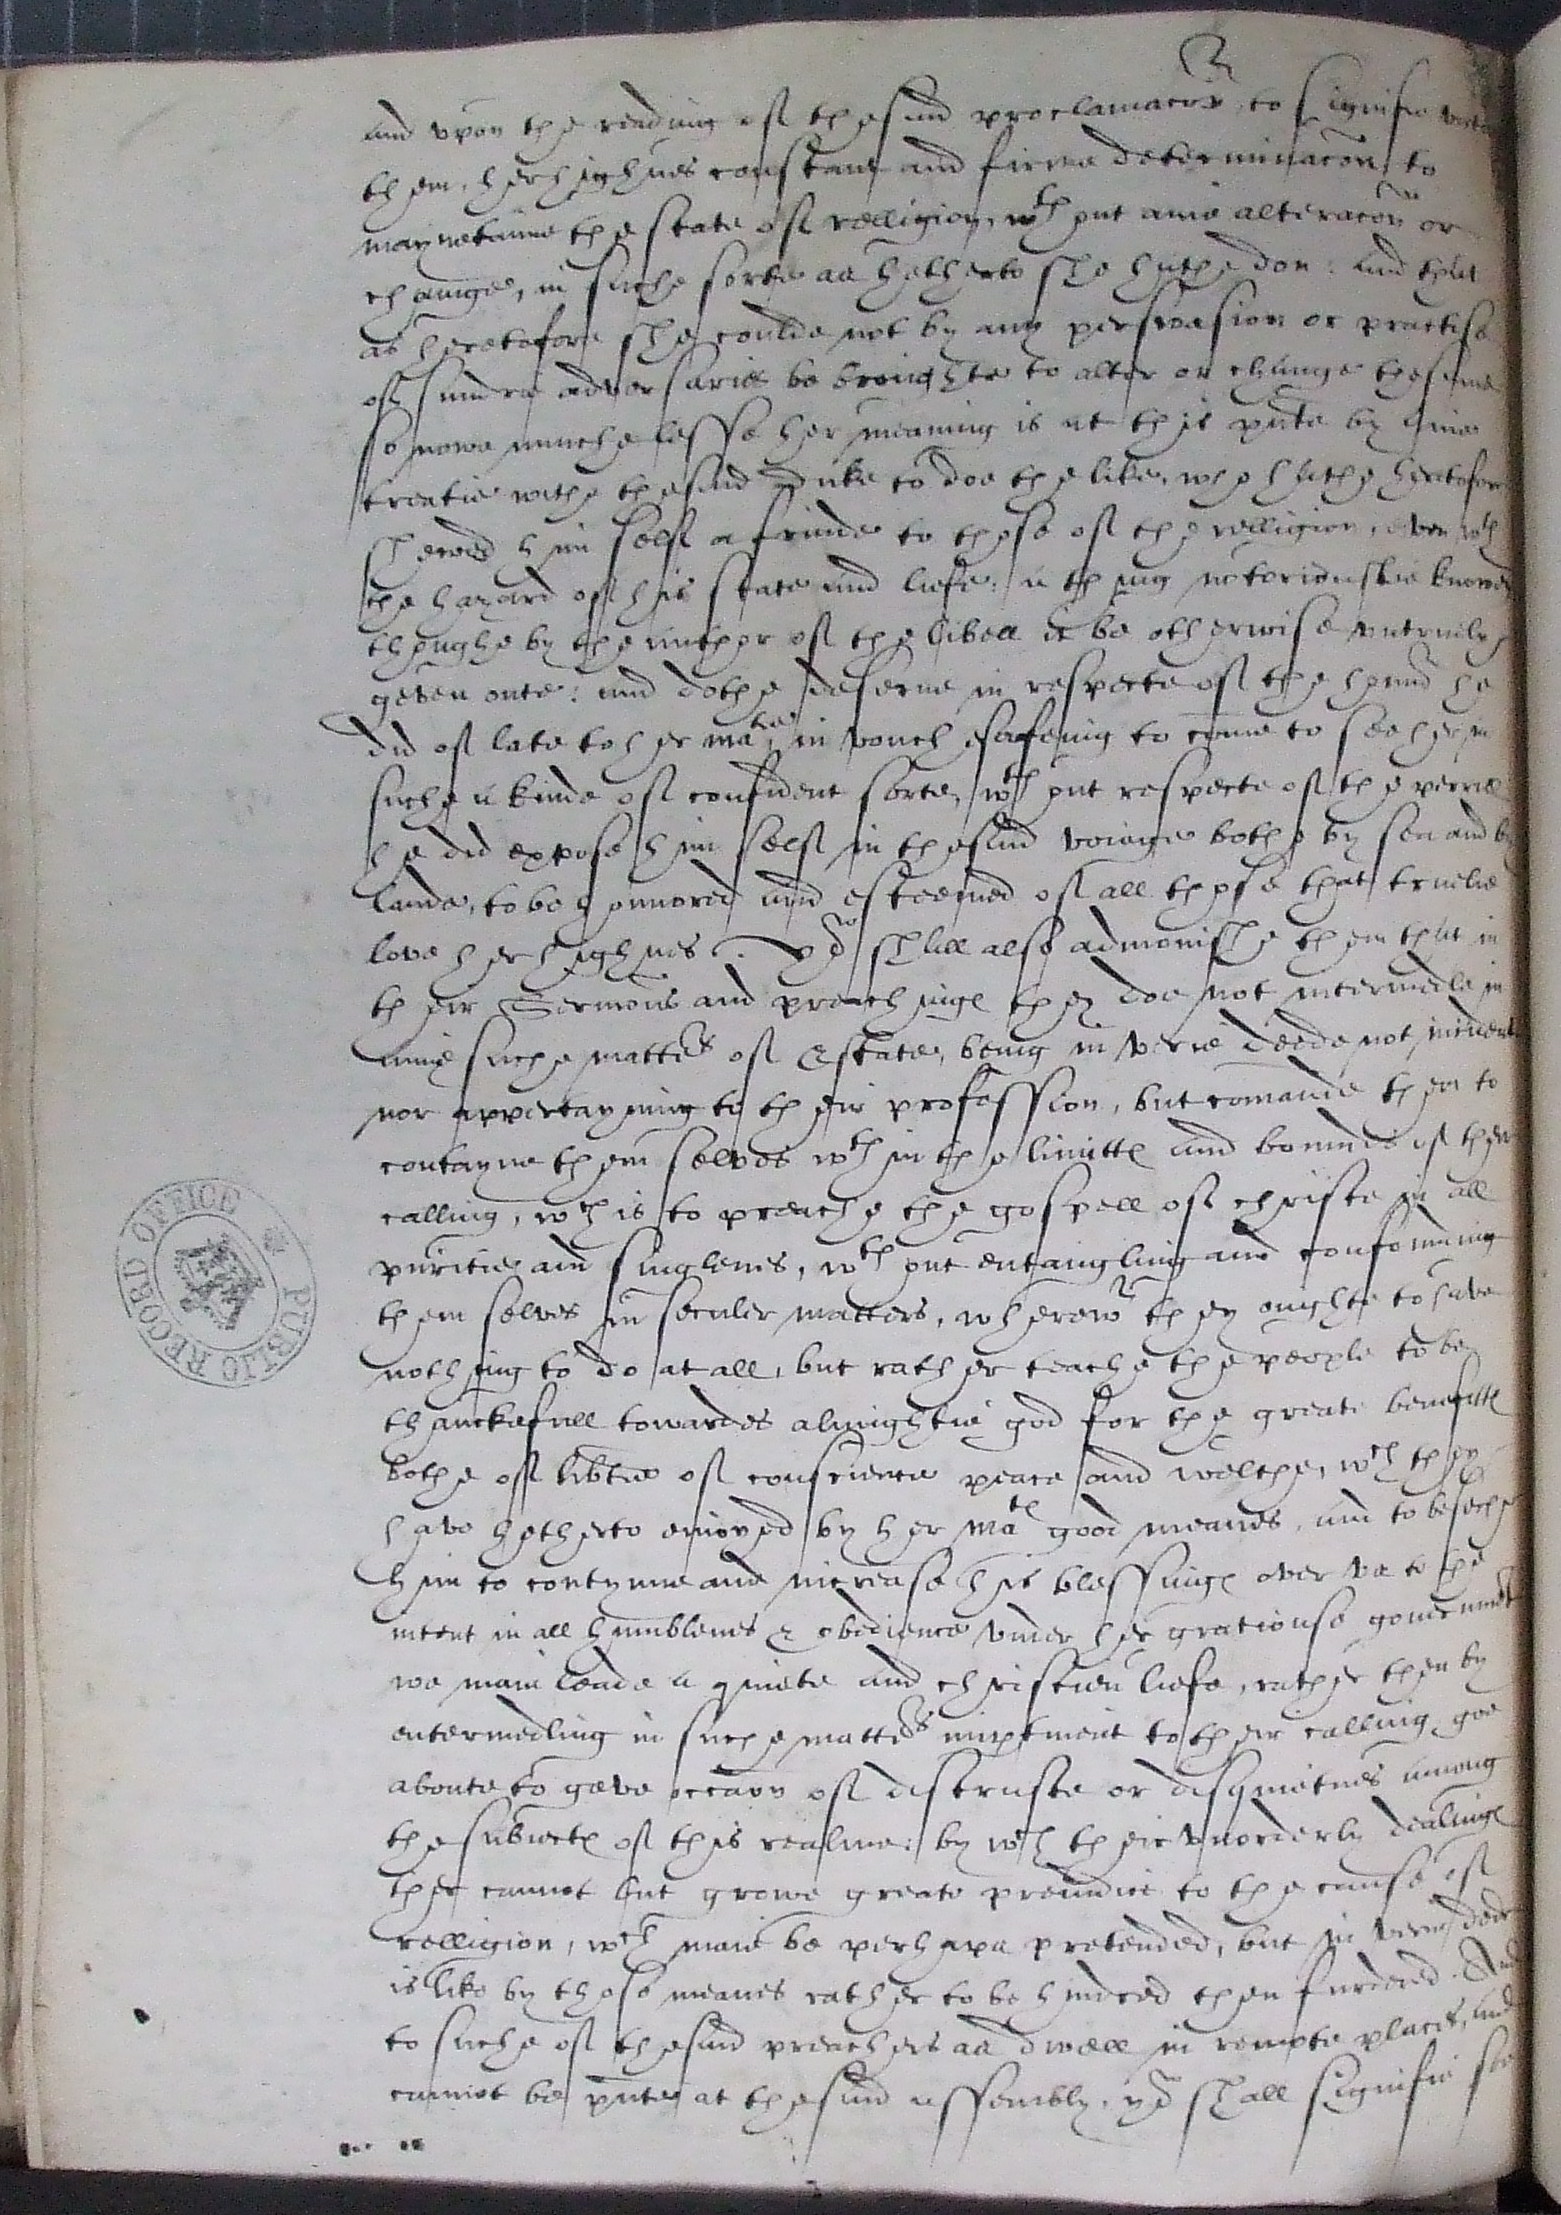 and vpon the reading of the said proclamacõn, to signifie vnto
them, her highnes constant and firme determinacõn to
maynetaine the state of relligion, wth out anie alteracõn or
chaunge, in suche sorte as hetherto she hathe don: and that
as heretofore she coulde not by any perswasion or practise
of sundrie adversaries be broughte to alter or chaunge the same
so nowe muche lesse her meaning is at this pñte by anie
treatie withe the said duke to doe the like, who hathe heretofore
shewed him self a frinde to those of the relligion, even wth
the hazard of his state and liefe: a thing notoriouslie knowen
thoughe by the author of the libell it be otherwise vntruly
geven oute: and dothe deserve in respecte of the honnor he
did of late to her matie, in vouchesafeing to come to see her in
suche a kinde of confident sorte, wth out respecte of the perrill
he did expose him self in the said voiage bothe by sea and by
lande, to be honnored and esteemed of all those that truelie
love her highnes. yow shall also admonishe them that in
their Sermons and preachinge they doe not intermedle in
anie suche matters of Estate, being in verie deede not incident
nor appertayning to their profession, but comaunde them to
contayne them selves wth in the limitte and boundes of their
calling, wch is to preache the gospell of christe in all
puritie and singlenes, wth out entangling and confounding
them selves in seculer matters, wherewth they oughte to have
nothing to do at all, but rather teache the people to be
thanckefull towardes almightie god for the greate benefitte
bothe of libtie of conscience peace and welthe, wch they
have hetherto enioyed by her mate good meanes, and to beseche
him to contynue and increase his blessinge over vs to the
intent in all humblenes & obedience vnder her gratiouse gouernmt
we maie leade a quiete and christien liefe, rather then by
entermedling in suche matters imptinent to their calling, goe
aboute to geve occaon of distruste or disquietnes among
the subiecte of this realme: by wch their vnorderly dealinge
ther cannot but growe greate preiudice to the cause of
relligion, wch maie be perhaps pretended, but in verie dede
is like by those meanes rather to be hindred then furdered. And
to suche of the said preachers as dwell in remote places, and
cannot be pñte at the said assembly, yow shall signifie soe
PUBLIC RECORD OFFICE